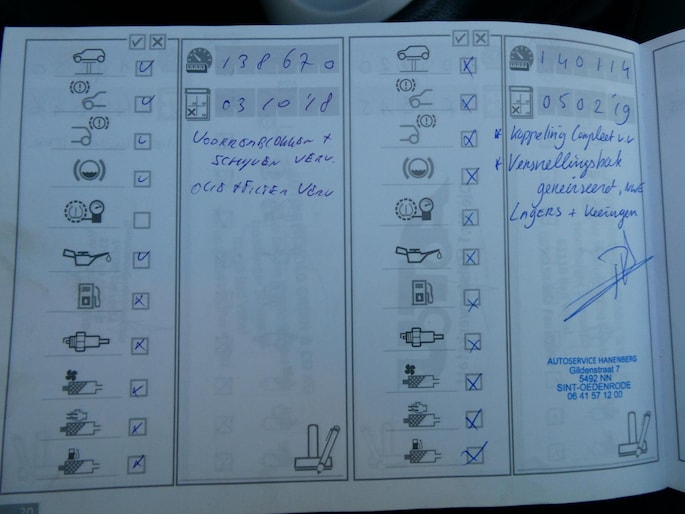 138670
03 10 '18
VOORREMBLOKKEN +
SCHIJVEN VERV.
OLIE + FILTER VERV
140114
05 02 '19
* Koppeling Compleet v.v
* Versnellingsbak
gereviseerd, NWE
LAgers + Keeringen
AUTOSERVICE HANENBERG
Gildenstraat 7
5492 NN
SINT-OEDENRODE
06 41 57 12 00
20